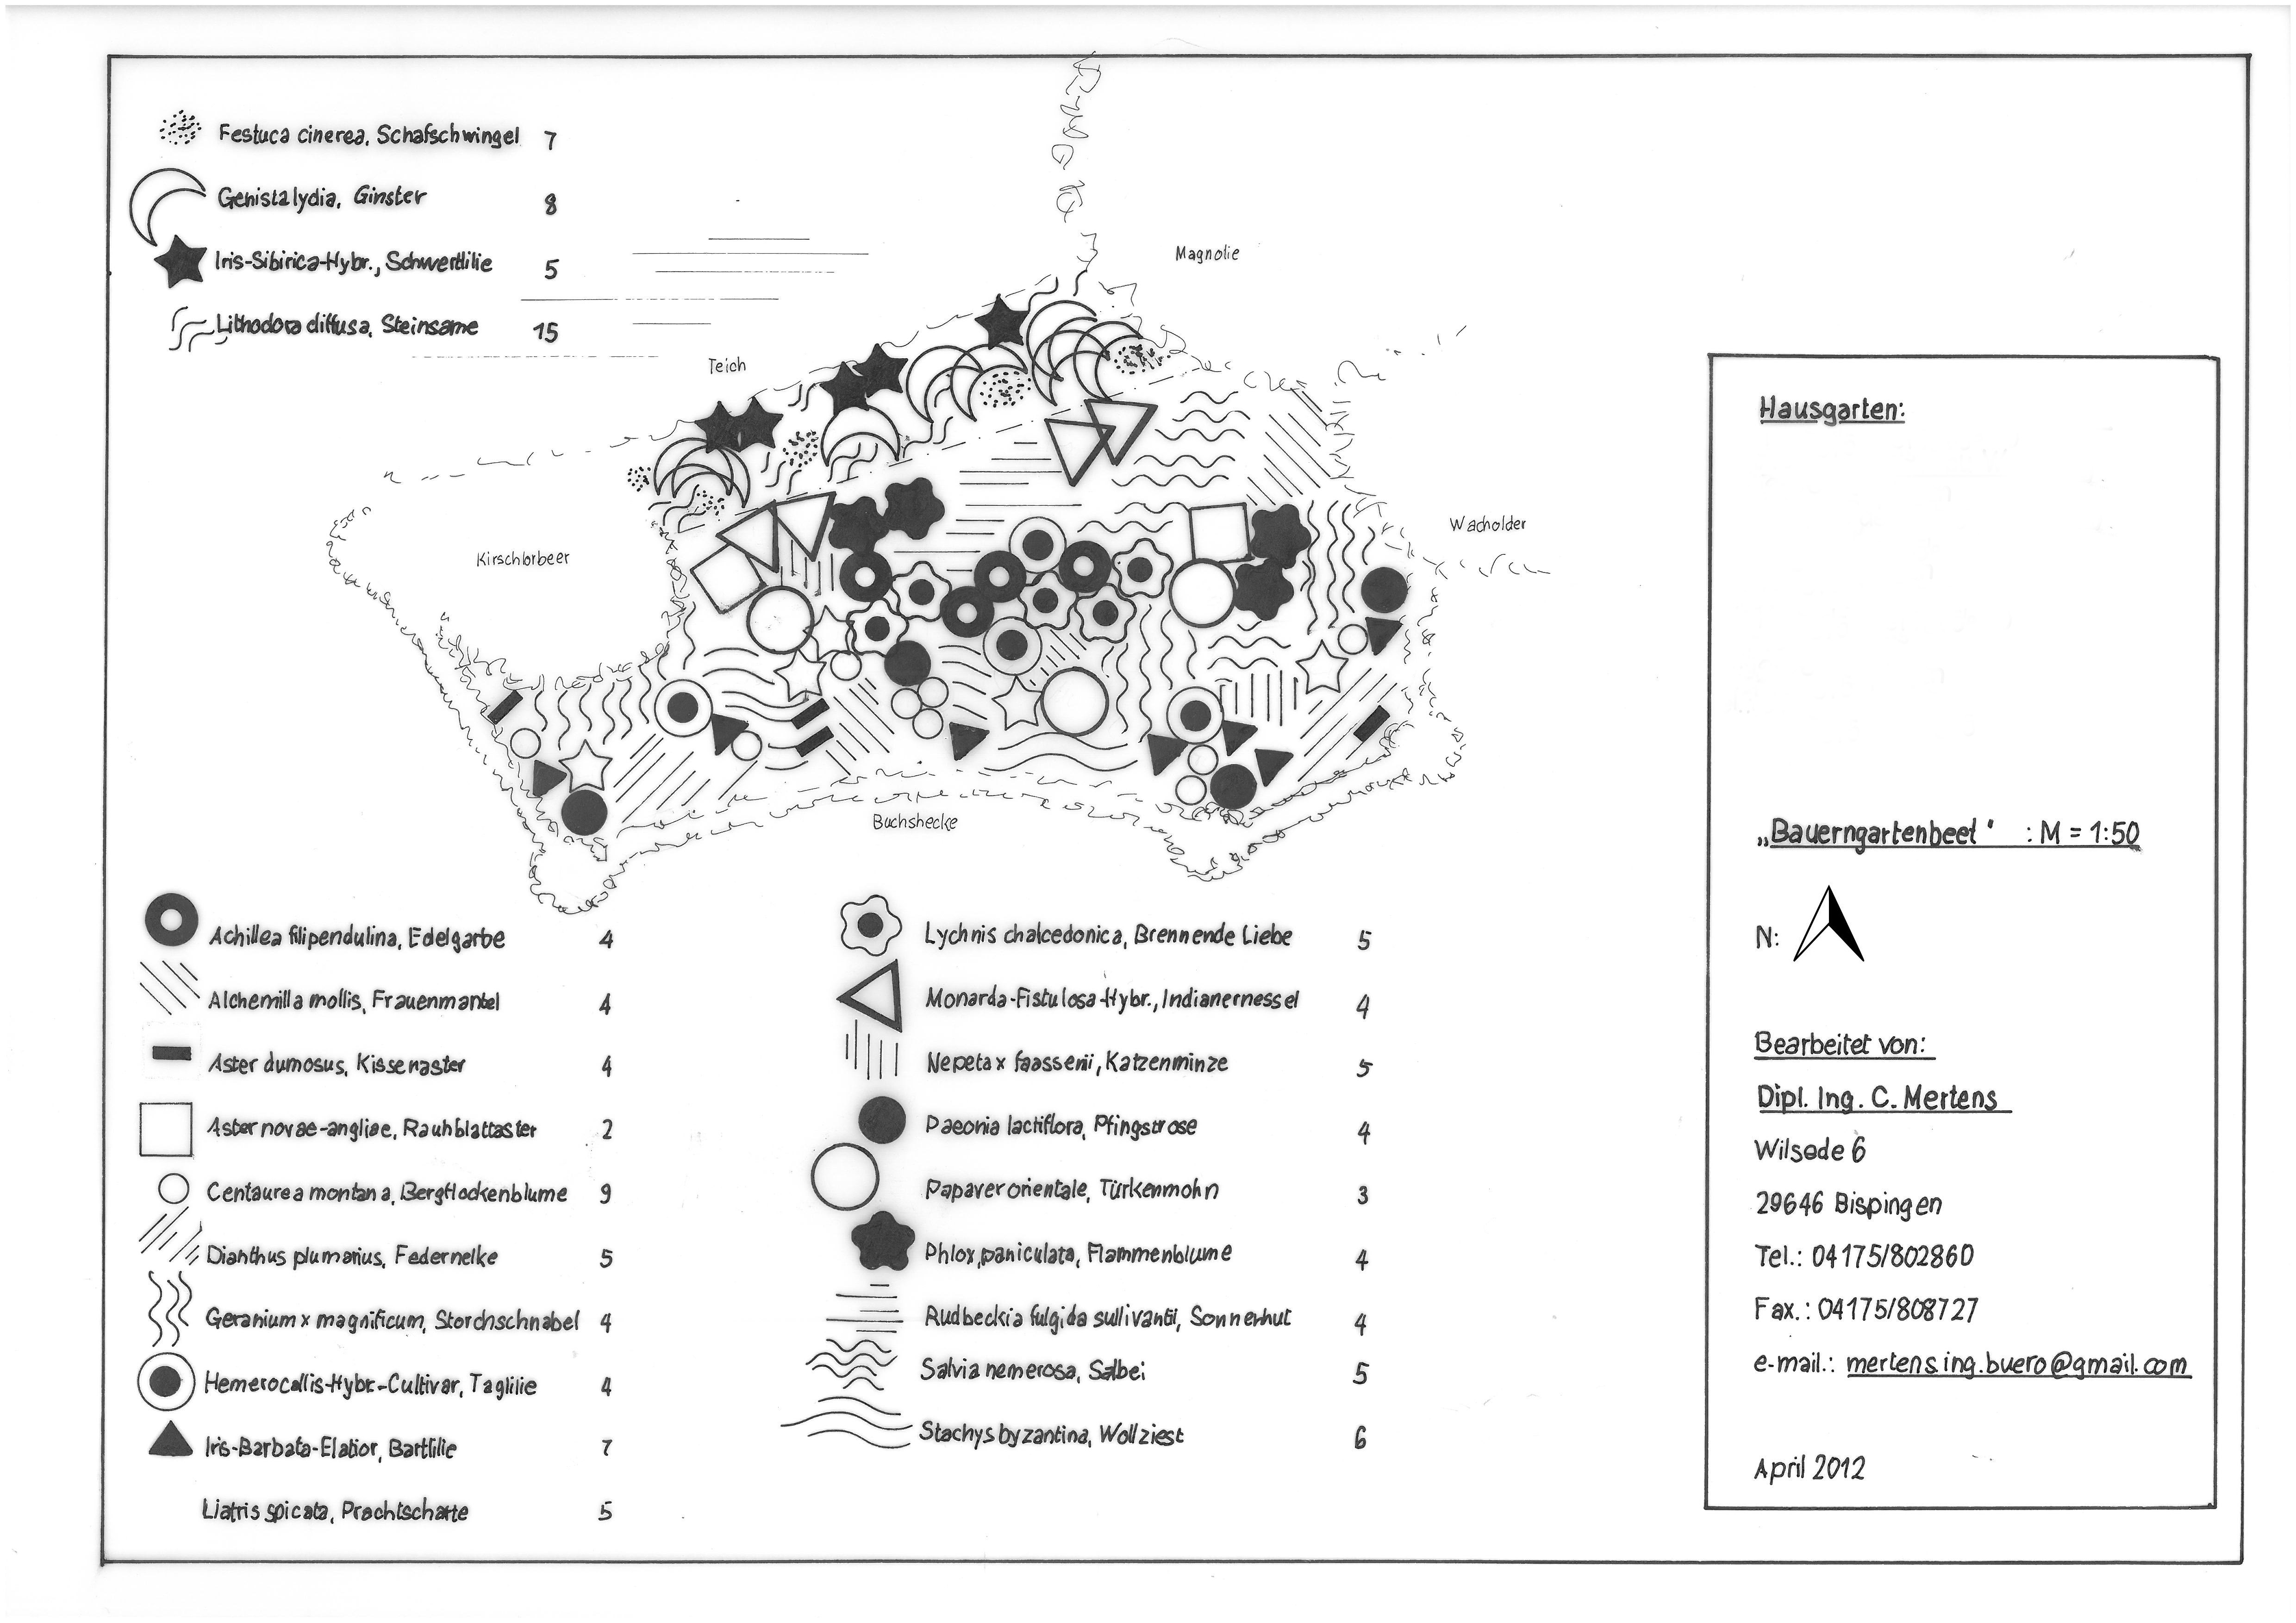 Festuca cinerea, Schafschwingel 7
Genista lydia, Ginster 8
Iris-Sibirica-Hybr., Schwertlilie 5
Lithodora diffusa, Steinsame 15
Magnolie
Teich
Wacholder
Kirschlorbeer
Buchshecke
Achillea filipendulina, Edelgarbe 4
Alchemilla mollis, Frauenmantel 4
Aster dumosus, Kissenaster 4
Aster novae-angliae, Rauhblattaster 2
Centaurea montana, Bergflockenblume 9
Dianthus plumarius, Federnelke 5
Geranium x magnificum, Storchschnabel 4
Hemerocallis-Hybr.-Cultivar, Taglilie 4
Iris-Barbata-Elatior, Bartlilie 7
Liatris spicata, Prachtscharte 5
Lychnis chalcedonica, Brennende Liebe 5
Monarda-Fistulosa-Hybr., Indianernessel 4
Nepeta x faassenii, Katzenminze 5
Paeonia lactiflora, Pfingstrose 4
Papaver orientale, Türkenmohn 3
Phlox paniculata, Flammenblume 4
Rudbeckia fulgida sullivantii, Sonnenhut 4
Salvia nemerosa, Salbei 5
Stachys byzantina, Wollziest 6
Hausgarten:
„Bauerngartenbeet" : M = 1:50
N:
Bearbeitet von:
Dipl. Ing. C. Mertens
Wilsede 6
29646 Bispingen
Tel.: 04175/802860
Fax.: 04175/808727
e-mail.: mertens.ing.buero@gmail.com
April 2012